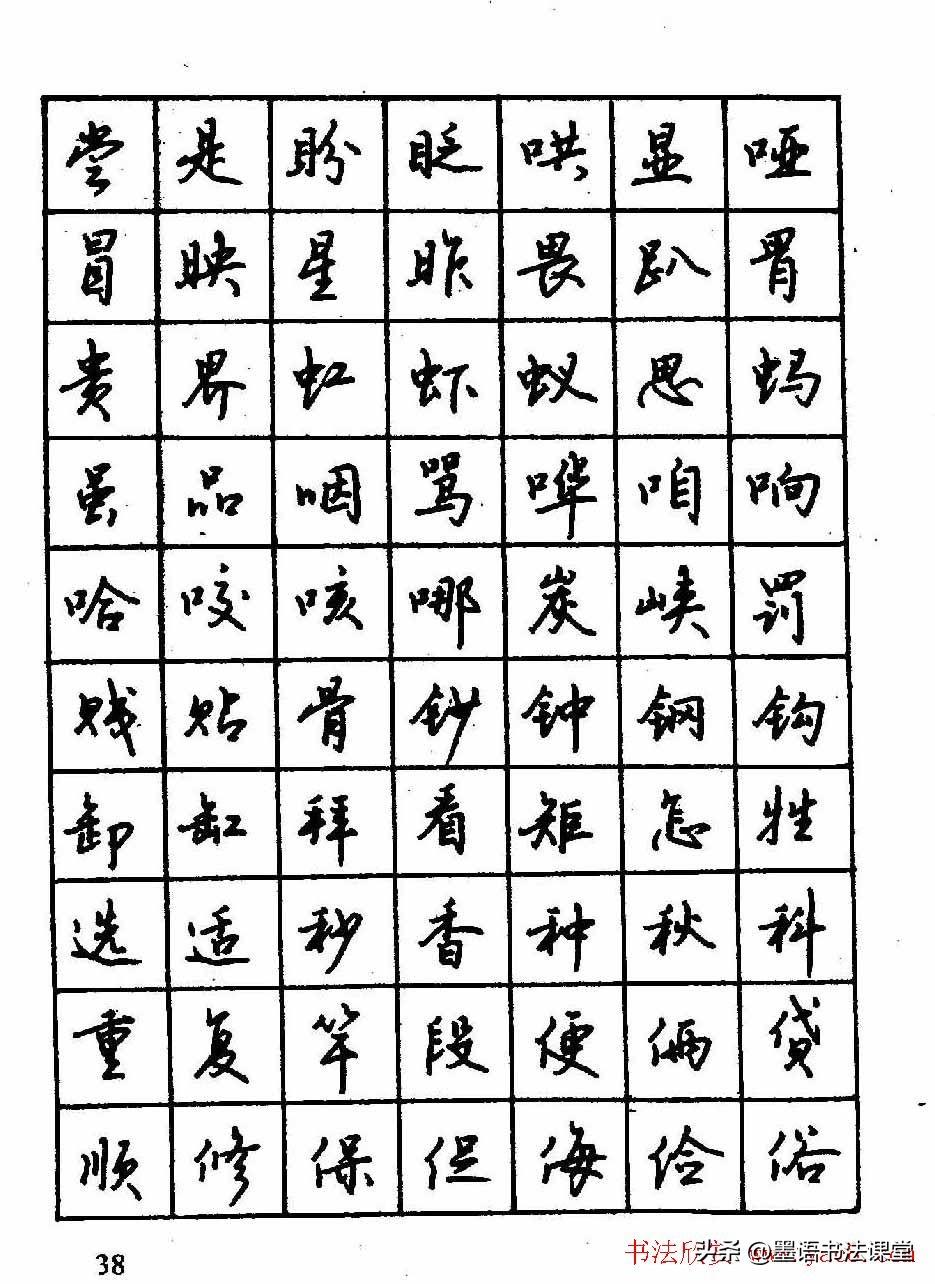 尝是盼眨哄显哑
冒映星昨畏趴胃
贵界虹虾蚁思蚂
虽品咽骂哗咱响
哈咬咳哪炭峡罚
贱贴骨钞钟钢钩
卸缸拜看矩怎牲
选适秒香种秋科
重复竿段便俩贷
顺修保促侮俭俗
38
书法欣
头条 @墨语书法课堂